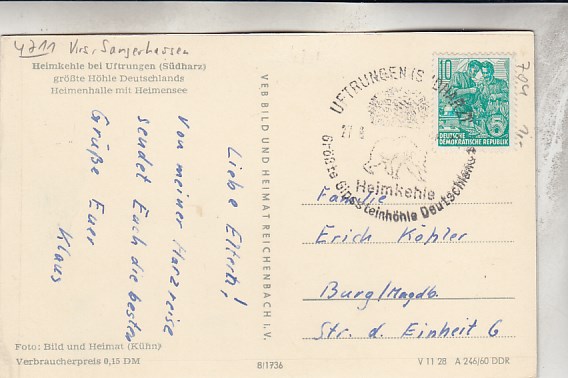 4711 Krs. Sangerhausen
Heimkehle bei Uftrungen (Südharz)
größte Höhle Deutschlands
Heimenhalle mit Heimensee
Liebe Eltern!
Von meiner Harzreise
sendet Euch die besten
Grüße Euer
Klaus
Foto: Bild und Heimat (Kühn)
Verbraucherpreis 0,15 DM
VEB BILD UND HEIMAT REICHENBACH I. V.
8/1736
UFTRUNGEN (S
27.
Heimkehle
Größte Gipssteinhöhle Deutschlands
10
DEUTSCHE
DEMOKRATISCHE REPUBLIK
7.04
Familie
Erich Köpler
Burg/Magdb.
Str. d. Einheit 6
V 11 28 A 246/60 DDR